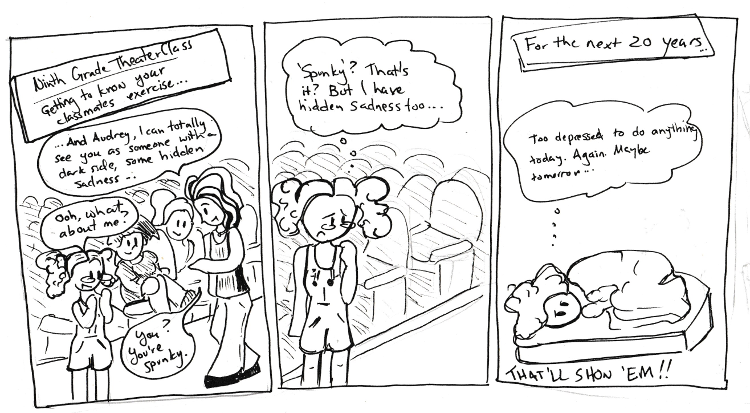 Ninth Grade Theater Class
Getting to know your
classmates exercise...
...And Audrey, I can totally
see you as someone with a
dark side, some hidden
sadness...
Ooh, what
about me?
You?
You're
spunky.
'Spunky'? That's
it? But I have
hidden sadness too...
For the next 20 years...
Too depressed to do anything
today. Again. Maybe
tomorrow...
THAT'LL SHOW 'EM!!